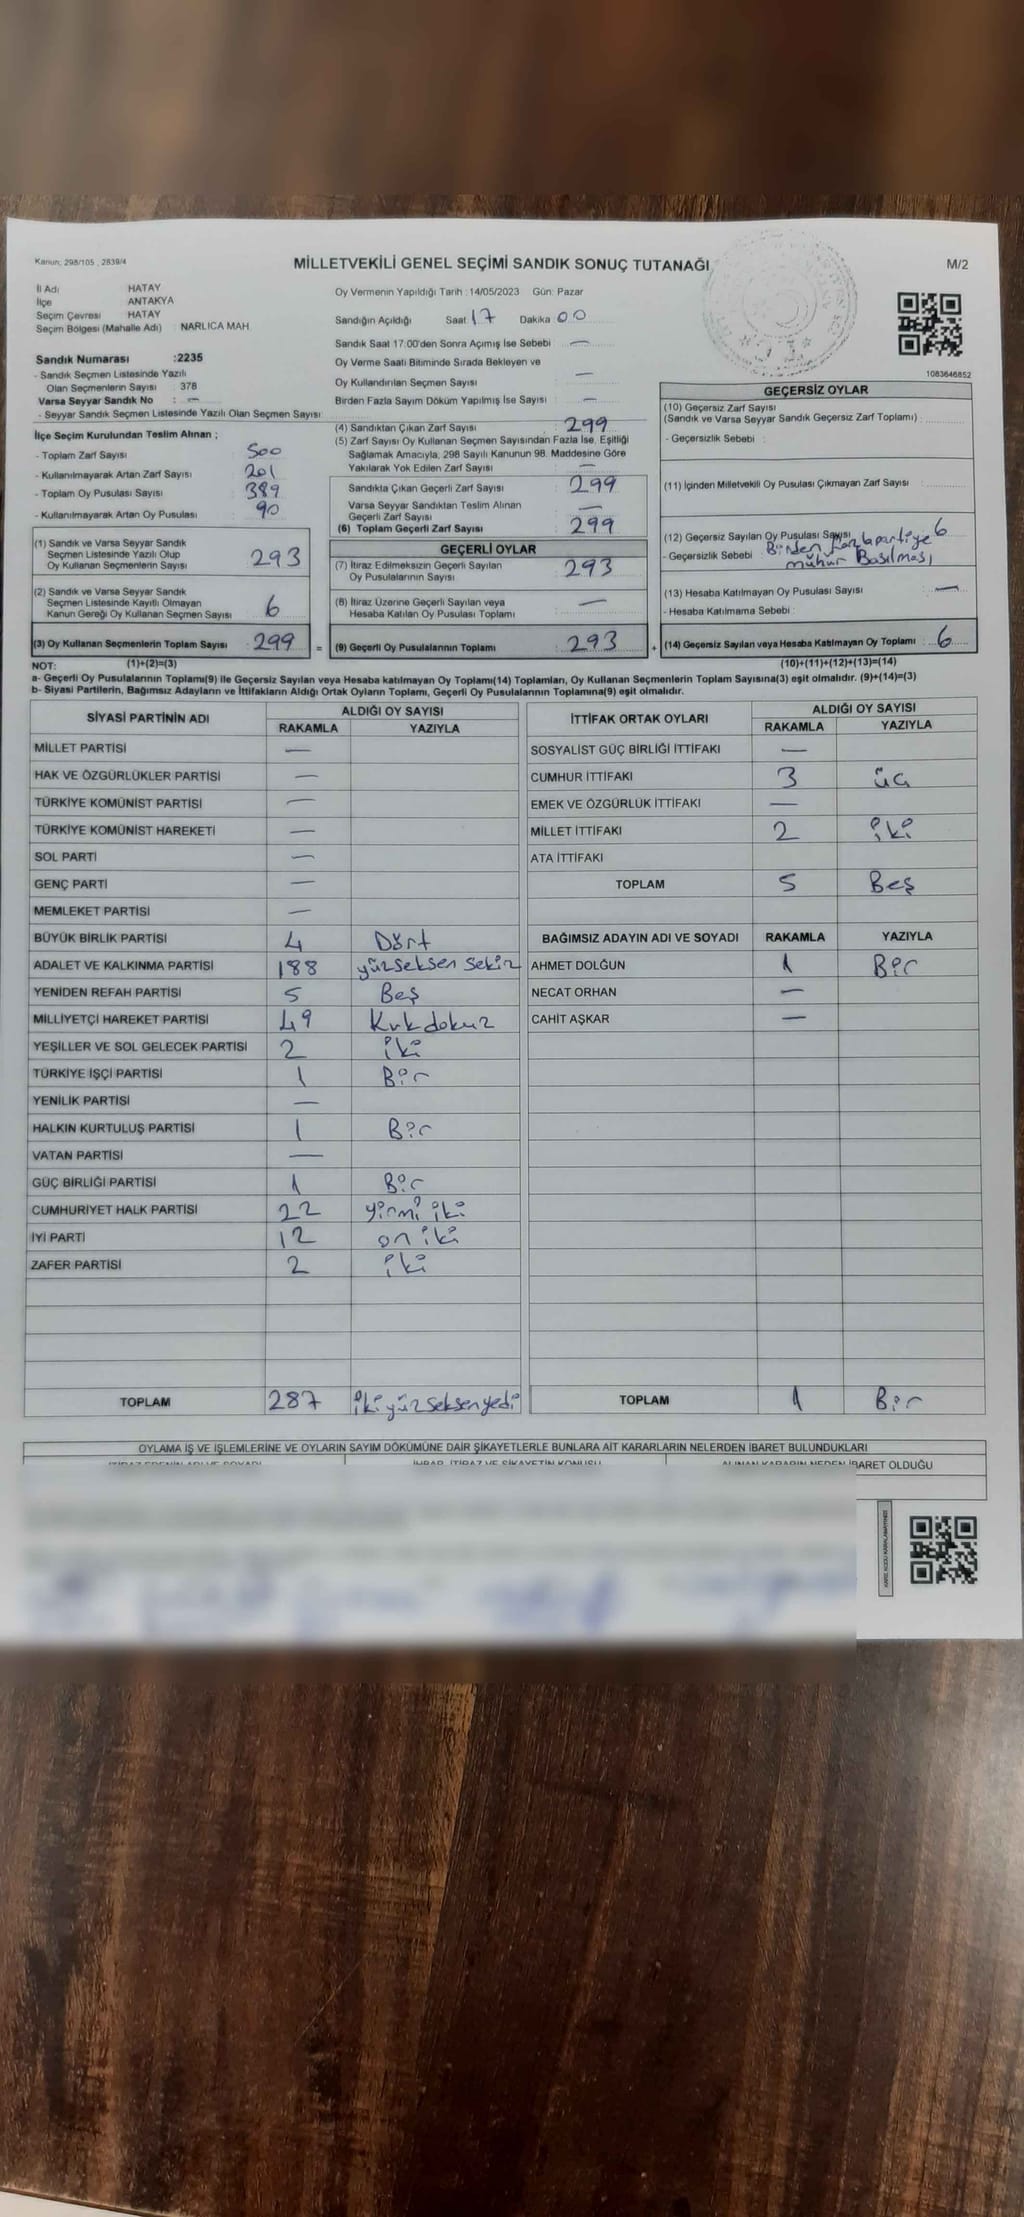 Kanun; 298/105 , 2839/4
MİLLETVEKİLİ GENEL SEÇİMİ SANDIK SONUÇ TUTANAĞI
M/2
İl Adı HATAY
İlçe ANTAKYA
Seçim Çevresi HATAY
Seçim Bölgesi (Mahalle Adı) : NARLICA MAH.
Sandık Numarası :2235
- Sandık Seçmen Listesinde Yazılı
Olan Seçmenlerin Sayısı : 378
Varsa Seyyar Sandık No : —
- Seyyar Sandık Seçmen Listesinde Yazılı Olan Seçmen Sayısı:
Oy Vermenin Yapıldığı Tarih : 14/05/2023 Gün: Pazar
Sandığın Açıldığı Saat 17 Dakika 00
Sandık Saat 17:00'den Sonra Açılmış İse Sebebi —
Oy Verme Saati Bitiminde Sırada Bekleyen ve
Oy Kullandırılan Seçmen Sayısı —
Birden Fazla Sayım Döküm Yapılmış İse Sayısı —
1083646852
İlçe Seçim Kurulundan Teslim Alınan ;
- Toplam Zarf Sayısı : 500
- Kullanılmayarak Artan Zarf Sayısı : 201
- Toplam Oy Pusulası Sayısı : 389
- Kullanılmayarak Artan Oy Pusulası : 90
(1) Sandık ve Varsa Seyyar Sandık
Seçmen Listesinde Yazılı Olup
Oy Kullanan Seçmenlerin Sayısı : 293
(2) Sandık ve Varsa Seyyar Sandık
Seçmen Listesinde Kayıtlı Olmayan
Kanun Gereği Oy Kullanan Seçmen Sayısı : 6
(3) Oy Kullanan Seçmenlerin Toplam Sayısı : 299 =
(4) Sandıktan Çıkan Zarf Sayısı : 299
(5) Zarf Sayısı Oy Kullanan Seçmen Sayısından Fazla İse, Eşitliği
Sağlamak Amacıyla, 298 Sayılı Kanunun 98. Maddesine Göre
Yakılarak Yok Edilen Zarf Sayısı : —
Sandıkta Çıkan Geçerli Zarf Sayısı : 299
Varsa Seyyar Sandıktan Teslim Alınan
Geçerli Zarf Sayısı : —
(6) Toplam Geçerli Zarf Sayısı : 299
GEÇERLİ OYLAR
(7) İtiraz Edilmeksizin Geçerli Sayılan
Oy Pusulalarının Sayısı : 293
(8) İtiraz Üzerine Geçerli Sayılan veya
Hesaba Katılan Oy Pusulası Toplamı : —
(9) Geçerli Oy Pusulalarının Toplamı : 293 +
GEÇERSİZ OYLAR
(10) Geçersiz Zarf Sayısı
(Sandık ve Varsa Seyyar Sandık Geçersiz Zarf Toplamı) :
- Geçersizlik Sebebi :
(11) İçinden Milletvekili Oy Pusulası Çıkmayan Zarf Sayısı :
(12) Geçersiz Sayılan Oy Pusulası Sayısı : 6
- Geçersizlik Sebebi : Birden fazla partiye
mühür Basılması
(13) Hesaba Katılmayan Oy Pusulası Sayısı : —
- Hesaba Katılmama Sebebi :
(14) Geçersiz Sayılan veya Hesaba Katılmayan Oy Toplamı : 6
NOT: (1)+(2)=(3) (10)+(11)+(12)+(13)=(14)
a- Geçerli Oy Pusulalarının Toplamı(9) ile Geçersiz Sayılan veya Hesaba katılmayan Oy Toplamı(14) Toplamları, Oy Kullanan Seçmenlerin Toplam Sayısına(3) eşit olmalıdır. (9)+(14)=(3)
b- Siyasi Partilerin, Bağımsız Adayların ve İttifakların Aldığı Ortak Oyların Toplamı, Geçerli Oy Pusulalarının Toplamına(9) eşit olmalıdır.
SİYASİ PARTİNİN ADI ALDIĞI OY SAYISI
RAKAMLA YAZIYLA
MİLLET PARTİSİ —
HAK VE ÖZGÜRLÜKLER PARTİSİ —
TÜRKİYE KOMÜNİST PARTİSİ —
TÜRKİYE KOMÜNİST HAREKETİ —
SOL PARTİ —
GENÇ PARTİ —
MEMLEKET PARTİSİ —
BÜYÜK BİRLİK PARTİSİ 4 Dört
ADALET VE KALKINMA PARTİSİ 188 yüzseksen sekiz
YENİDEN REFAH PARTİSİ 5 Beş
MİLLİYETÇİ HAREKET PARTİSİ 49 Kırkdokuz
YEŞİLLER VE SOL GELECEK PARTİSİ 2 iki
TÜRKİYE İŞÇİ PARTİSİ 1 Bir
YENİLİK PARTİSİ —
HALKIN KURTULUŞ PARTİSİ 1 Bir
VATAN PARTİSİ —
GÜÇ BİRLİĞİ PARTİSİ 1 Bir
CUMHURİYET HALK PARTİSİ 22 yirmi iki
İYİ PARTİ 12 on iki
ZAFER PARTİSİ 2 iki
TOPLAM 287 iki yüz seksen yedi
İTTİFAK ORTAK OYLARI ALDIĞI OY SAYISI
RAKAMLA YAZIYLA
SOSYALİST GÜÇ BİRLİĞİ İTTİFAKI —
CUMHUR İTTİFAKI 3 üç
EMEK VE ÖZGÜRLÜK İTTİFAKI —
MİLLET İTTİFAKI 2 iki
ATA İTTİFAKI
TOPLAM 5 Beş
BAĞIMSIZ ADAYIN ADI VE SOYADI RAKAMLA YAZIYLA
AHMET DOLĞUN 1 Bir
NECAT ORHAN —
CAHİT AŞKAR —
TOPLAM 1 Bir
OYLAMA İŞ VE İŞLEMLERİNE VE OYLARIN SAYIM DÖKÜMÜNE DAİR ŞİKAYETLERLE BUNLARA AİT KARARLARIN NELERDEN İBARET BULUNDUKLARI
İTİRAZ EDENİN ADI VE SOYADI İHBAR, İTİRAZ VE ŞİKAYETİN KONUSU ALINAN KARARIN NEDEN İBARET OLDUĞU